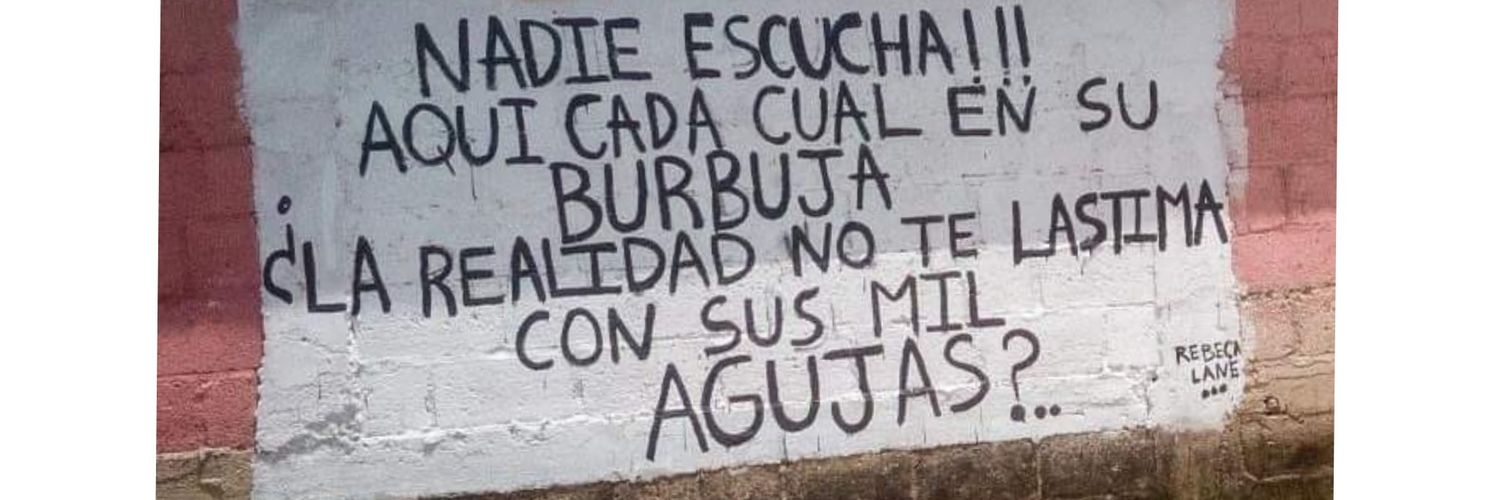 NADIE ESCUCHA!!!
AQUI CADA CUAL EN SU
BURBUJA
¿LA REALIDAD NO TE LASTIMA
CON SUS MIL
AGUJAS?..
REBECA
LANE
...